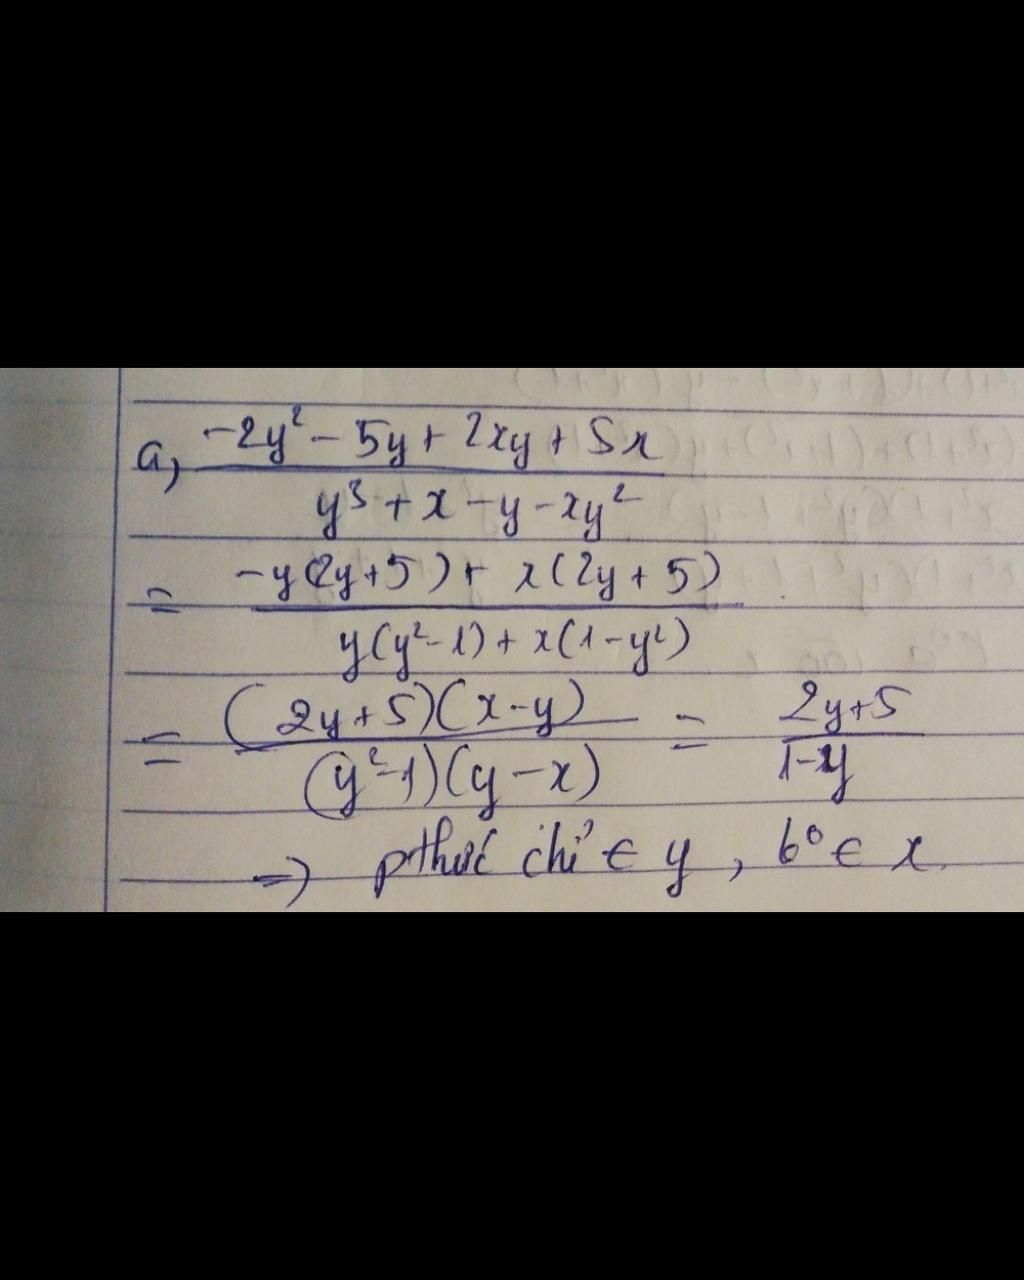 a, (-2y² - 5y + 2xy + 5x)/(y³ + x - y - xy²)
= (-y(2y+5) + x(2y+5))/(y(y²-1) + x(1-y²))
= ((2y+5)(x-y))/((y²-1)(y-x)) = (2y+5)/(1-y)
=> pthức chỉ ∈ y, b° ∈ x.